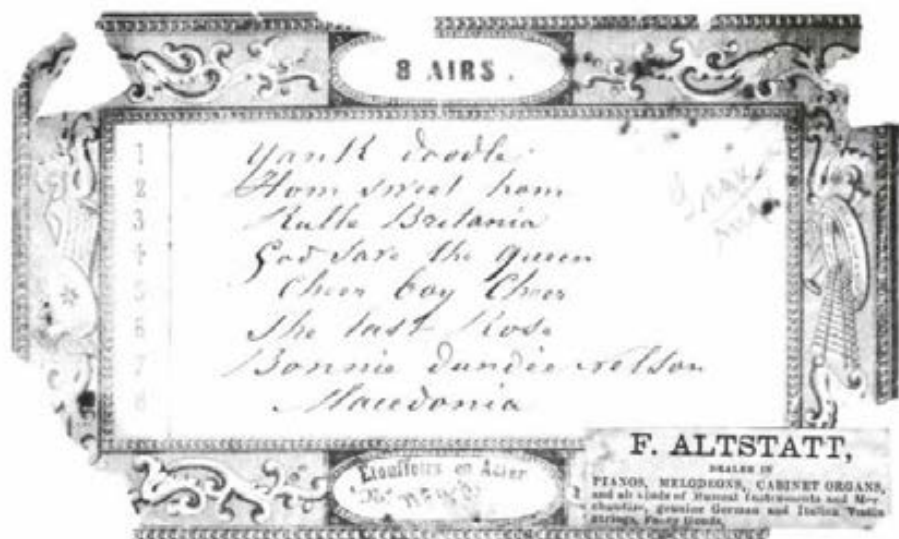 8 AIRS.
1 Yank doodle
2 Hom sweet hom
3 Rulle Britania
4 God save the queen
5 Cheer boy Cheer
6 The last Rose
7 Bonnie dundee nelson
8 Macedonia
Etouffoirs en Acier
F. ALTSTATT,
DEALER IN
PIANOS, MELODEONS, CABINET ORGANS,
and all kinds of Musical Instruments and Mer-
chandise, genuine German and Italian Violin
Strings, Fancy Goods,